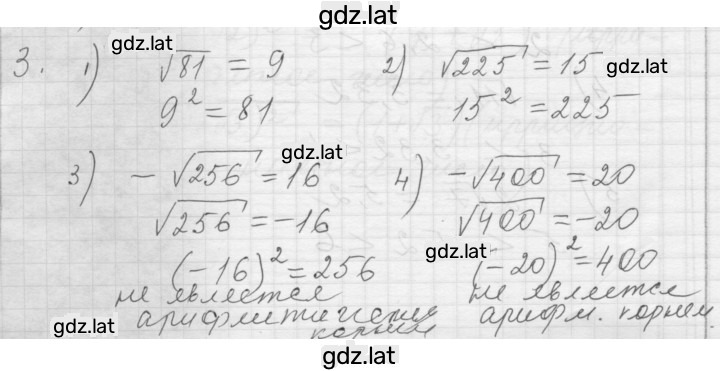 gdz.lat
3. 1) √81 = 9 2) √225 = 15
gdz.lat gdz.lat
9² = 81 15² = 225
3) -√256 = 16 4) -√400 = 20
gdz.lat
√256 = -16 √400 = -20
(-16)² = 256 (-20)² = 400
gdz.lat
не является не является
арифметическим арифм. корнем.
корнем
gdz.lat
gdz.lat